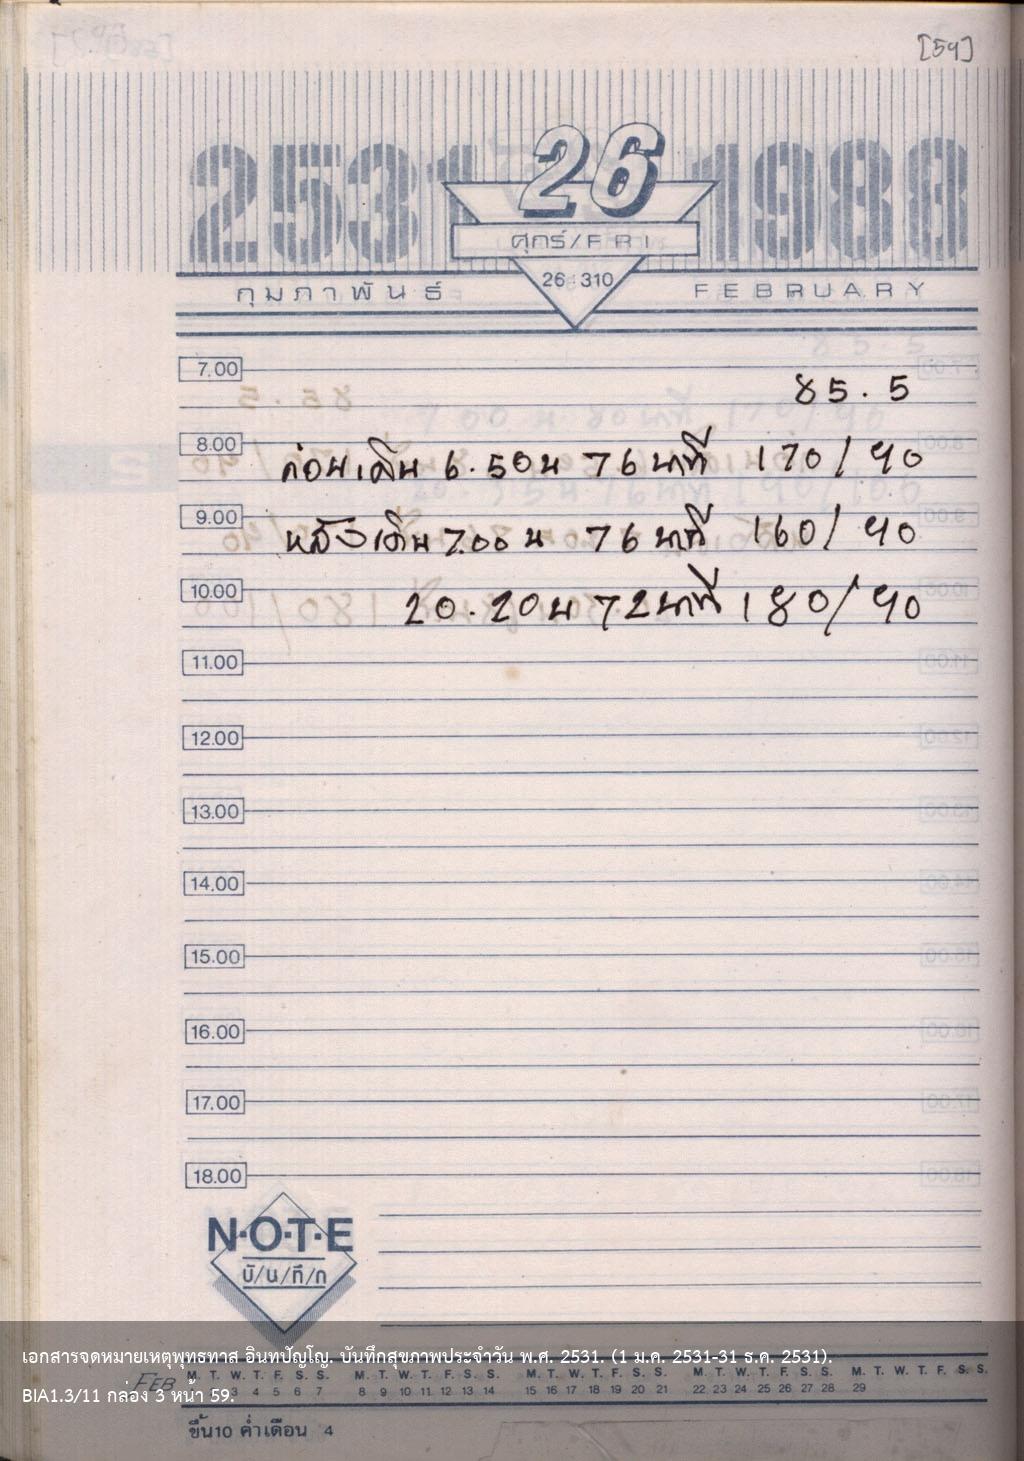 [59]
2531 1988
26
ศุกร์/FRI
26 310
กุมภาพันธ์ FEBRUARY
7.00
85.5
8.00
ก่อนเดิน 6.50น 76 นาที 170/90
9.00
หลังเดิน 7.00 น 76 นาที 160/90
10.00
20.20น 72 นาที 180/90
11.00
12.00
13.00
14.00
15.00
16.00
17.00
18.00
N·O·T·E
บั/น/ทึ/ก
เอกสารจดหมายเหตุพุทธทาส อินทปัญโญ. บันทึกสุขภาพประจำวัน พ.ศ. 2531. (1 ม.ค. 2531-31 ธ.ค. 2531).
FEB M. T. W. T. F. S. S. M. T. W. T. F. S. S. M. T. W. T. F. S. S. M. T. W. T. F. S. S. M. T. W. T. F. S. S.
3 4 5 6 7 8 9 10 11 12 13 14 15 16 17 18 19 20 21 22 23 24 25 26 27 28 29
BIA1.3/11 กล่อง 3 หน้า 59.
ขึ้น10 ค่ำเดือน 4